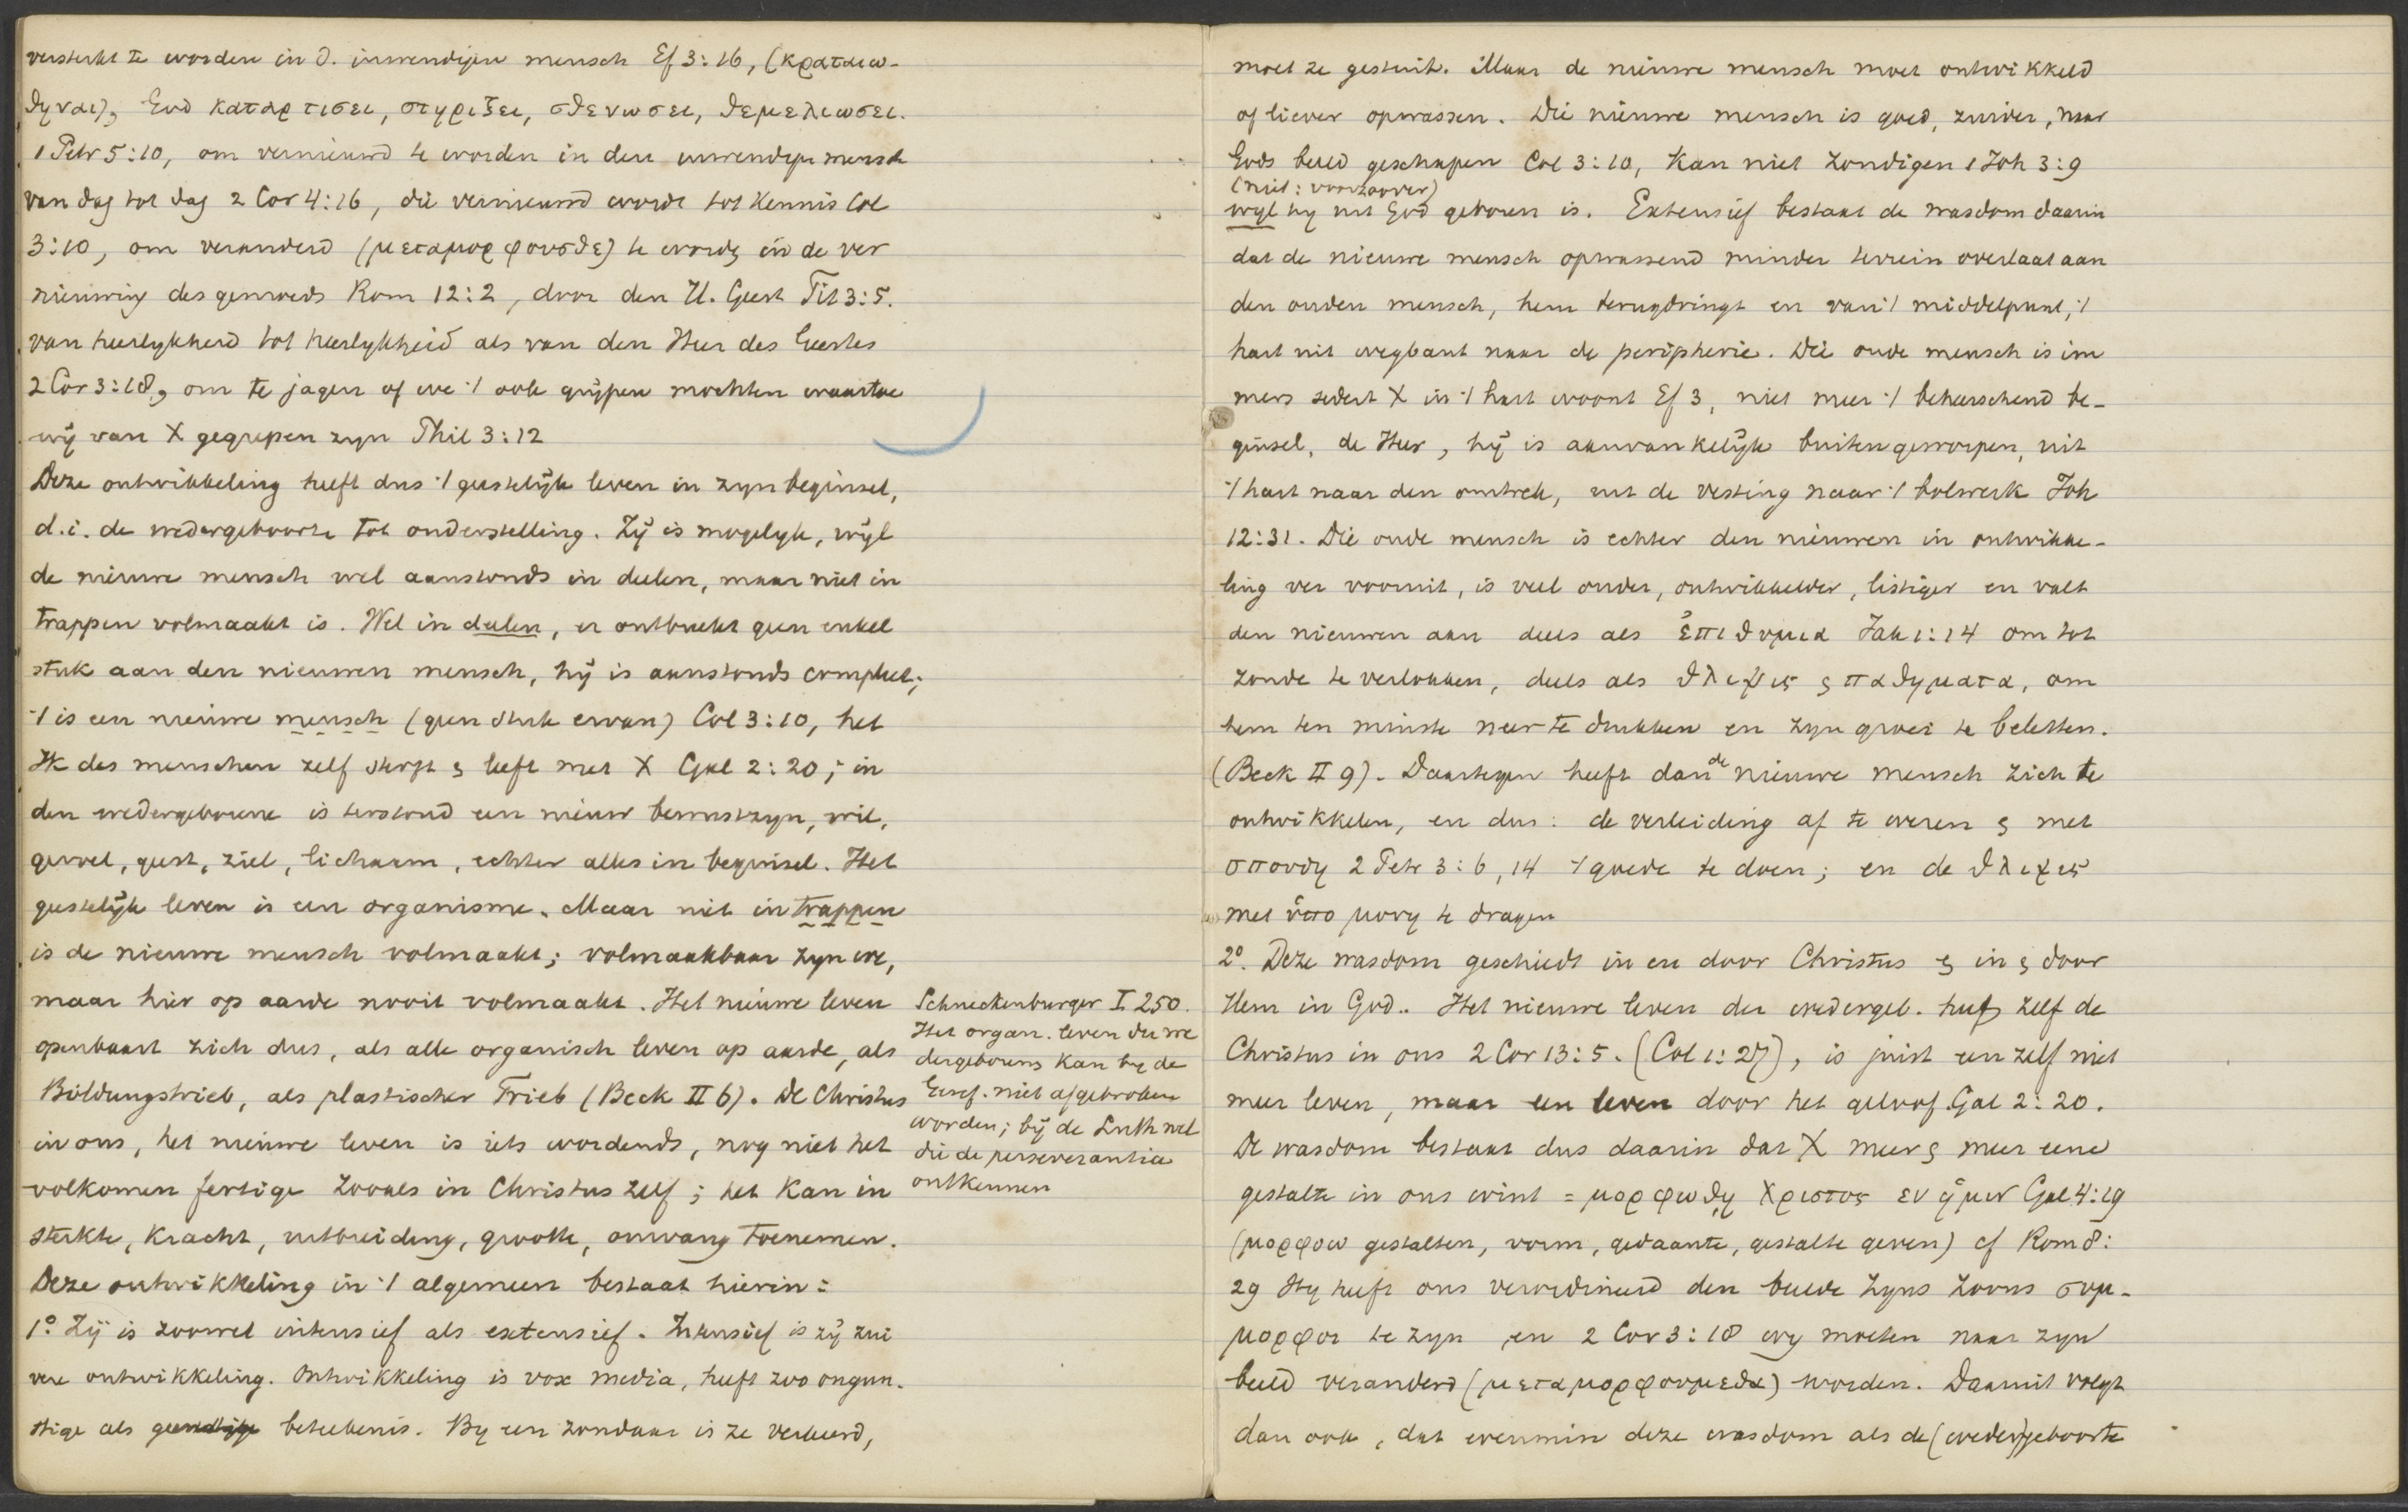 versterkt te worden in d. inwendigen mensch Ef 3:16, (κραταιω-
θηναι), God καταρτισει, στηριξει, σθενωσει, θεμελιωσει.
1 Petr 5:10, om vernieuwd te worden in den inwendigen mensch
van dag tot dag 2 Cor 4:16, die vernieuwd wordt tot kennis Col
3:10, om veranderd (μεταμορφουσθε) te worden in de ver
nieuwing des gemoeds Rom 12:2, door den H. Geest Tit 3:5.
van heerlykheid tot heerlykheid als van den Heer des Geestes
2 Cor 3:18, om te jagen of we 't ook grijpen mochten waartoe
wij van X gegrepen zyn Phil 3:12
Deze ontwikkeling heeft dus 't geestelijk leven in zyn beginsel,
d.i. de wedergeboorte tot onderstelling. Zij is mogelyk, wijl
de nieuwe mensch wel aanstonds in deelen, maar niet in
trappen volmaakt is. Wel in deelen, er ontbreekt geen enkel
stuk aan den nieuwen mensch, hij is aanstonds compleet;
't is een nieuwe mensch (geen stuk ervan) Col 3:10, het
Ik des menschen zelf sterft & leeft met X Gal 2:20; in
den wedergeborene is terstond een nieuw bewustzyn, wil,
gevoel, geest, ziel, lichaam, echter alles in beginsel. Het
geestelijk leven is een organisme. Maar niet in trappen
is de nieuwe mensch volmaakt; volmaakbaar zyn we,
maar hier op aarde nooit volmaakt. Het nieuwe leven
openbaart zich dus, als alle organisch leven op aarde, als
Bildungstrieb, als plastischer Trieb (Beck II 6). De Christus
in ons, het nieuwe leven is iets wordends, nog niet het
volkomen fertige zooals in Christus zelf; het kan in
sterkte, kracht, uitbreiding, grootte, omvang toenemen.
Deze ontwikkeling in 't algemeen bestaat hierin:
1º. Zij is zoowel intensief als extensief. Intensief is zij zui
vere ontwikkeling. Ontwikkeling is vox media, heeft zoo ongun-
stige als gunstige beteekenis. By een zondaar is ze verkeerd,
Schneckenburger I 250.
Het organ. leven der we
dergeborens kan by de
Geref. niet afgebroken
worden; bij de Luth wel
die de perseverantia
ontkennen
moet ze gestuit. Maar de nieuwe mensch moet ontwikkeld
of liever opwassen. Die nieuwe mensch is goed, zuiver, naar
Gods beeld geschapen Col 3:10, kan niet zondigen 1 Joh 3:9
(niet: voorzoover)
wyl hy uit God geboren is. Extensief bestaat de wasdom daarin
dat de nieuwe mensch opwassend minder terrein overlaat aan
den ouden mensch, hem terugdringt en van 't middelpunt, 't
hart uit wegbant naar de peripherie. Die oude mensch is im
mers sedert X in 't hart woont Ef 3, niet meer 't beheerschend be-
ginsel, de Heer, hij is aanvankelijk buitengeworpen, uit
't hart naar den omtrek, uit de vesting naar 't bolwerk Joh
12:31. Die oude mensch is echter den nieuwen in ontwikke-
ling ver vooruit, is veel ouder, ontwikkelder, listiger en valt
den nieuwen aan deels als ἐπιθυμια Jak 1:14 om tot
zonde te verlokken, deels als θλιψις & παθηματα, om
hem ten minste neer te drukken en zyn groei te beletten.
(Beck II 9). Daartegen heeft dan de nieuwe mensch zich te
ontwikkelen, en dus: de verleiding af te weren & met
σπουδη 2 Petr 3:6, 14 't goede te doen; en de θλιψις
met ὑπομονη te dragen
2º. Deze wasdom geschiedt in en door Christus & in & door
Hem in God.. Het nieuwe leven der wedergeb. heeft zelf de
Christus in ons 2 Cor 13:5. (Col 1:27), is juist een zelf niet
meer leven, maar een leven door het geloof. Gal 2:20.
De wasdom bestaat dus daarin dat X meer & meer eene
gestalte in ons wint = μορφωθῃ Χριστος εν ἡμιν Gal 4:19
(μορφοω gestalten, vorm, gedaante, gestalte geven) cf Rom 8:
29 Hy heeft ons verordineerd den beelde Zyns Zoons συμ-
μορφοι te zyn en 2 Cor 3:18 wy moeten naar zyn
beeld veranderd (μεταμορφουμεθα) worden. Daaruit volgt
dan ook, dat evenmin deze wasdom als de (weder)geboorte